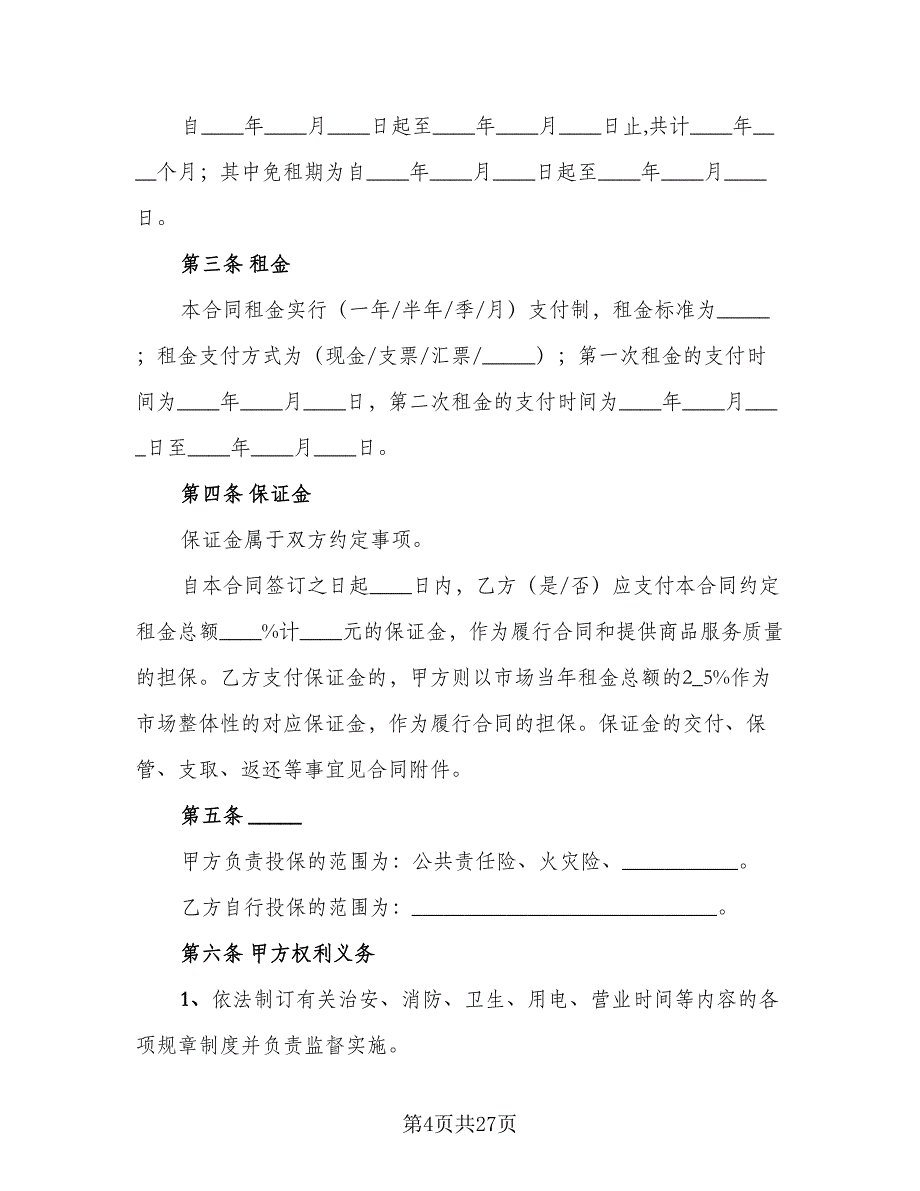 自____年____月____日起至____年____月____日止,共计____年__
__个月；其中免租期为自____年____月____日起至____年____月____
日。
第三条 租金
本合同租金实行（一年/半年/季/月）支付制，租金标准为_____
；租金支付方式为（现金/支票/汇票/_____）；第一次租金的支付时
间为____年____月____日，第二次租金的支付时间为____年____月___
_日至____年____月____日。
第四条 保证金
保证金属于双方约定事项。
自本合同签订之日起____日内，乙方（是/否）应支付本合同约定
租金总额____%计____元的保证金，作为履行合同和提供商品服务质量
的担保。乙方支付保证金的，甲方则以市场当年租金总额的2_5%作为
市场整体性的对应保证金，作为履行合同的担保。保证金的交付、保
管、支取、返还等事宜见合同附件。
第五条 _____
甲方负责投保的范围为：公共责任险、火灾险、___________。
乙方自行投保的范围为：_____________________________。
第六条 甲方权利义务
1、依法制订有关治安、消防、卫生、用电、营业时间等内容的各
项规章制度并负责监督实施。
第4页共27页